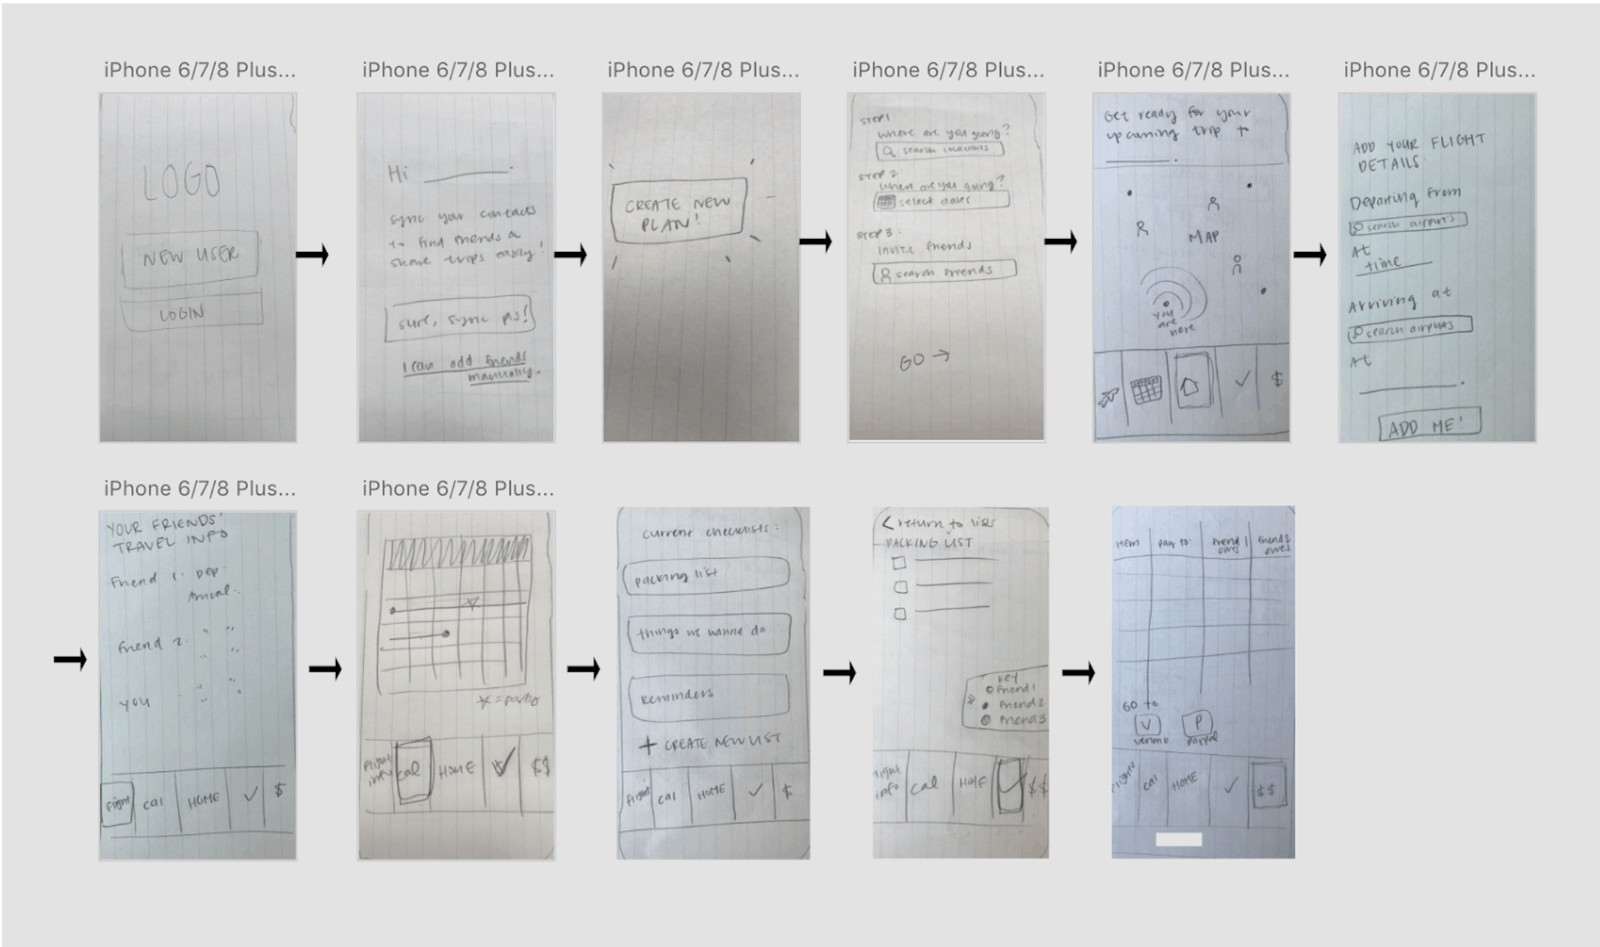 iPhone 6/7/8 Plus...
LOGO
NEW USER
LOGIN
iPhone 6/7/8 Plus...
Hi
sync your contacts
to find friends &
share trips easily!
sure, sync pls!
I can add friends
manually.
iPhone 6/7/8 Plus...
CREATE NEW
PLAN!
iPhone 6/7/8 Plus...
STEP 1
where are you going?
search locations
STEP 2
when are you going?
select dates
STEP 3:
invite friends
search friends
GO →
iPhone 6/7/8 Plus...
Get ready for your
upcoming trip to
.
MAP
you
are
here
✓
$
iPhone 6/7/8 Plus...
ADD YOUR FLIGHT
DETAILS:
Departing from
search airports
At
time
Arriving at
search airports
At
ADD ME!
iPhone 6/7/8 Plus...
YOUR FRIENDS'
TRAVEL INFO
Friend 1: Dep:
Arrival:
Friend 2: " "
" "
you " "
flight cal HOME ✓ $
iPhone 6/7/8 Plus...
= party
flight
info cal HOME ✓ $$
current checklists:
packing list
things we wanna do
Reminders
+ CREATE NEW LIST
flight cal HOME ✓ $
< return to lists
PACKING LIST
KEY
Friend 1
Friend 2
Friend 3
flight
info cal HOME ✓ $$
item pay to: friend 1
owes friend 2
owes
GO to
V P
venmo paypal
flight cal HOME ✓ $$